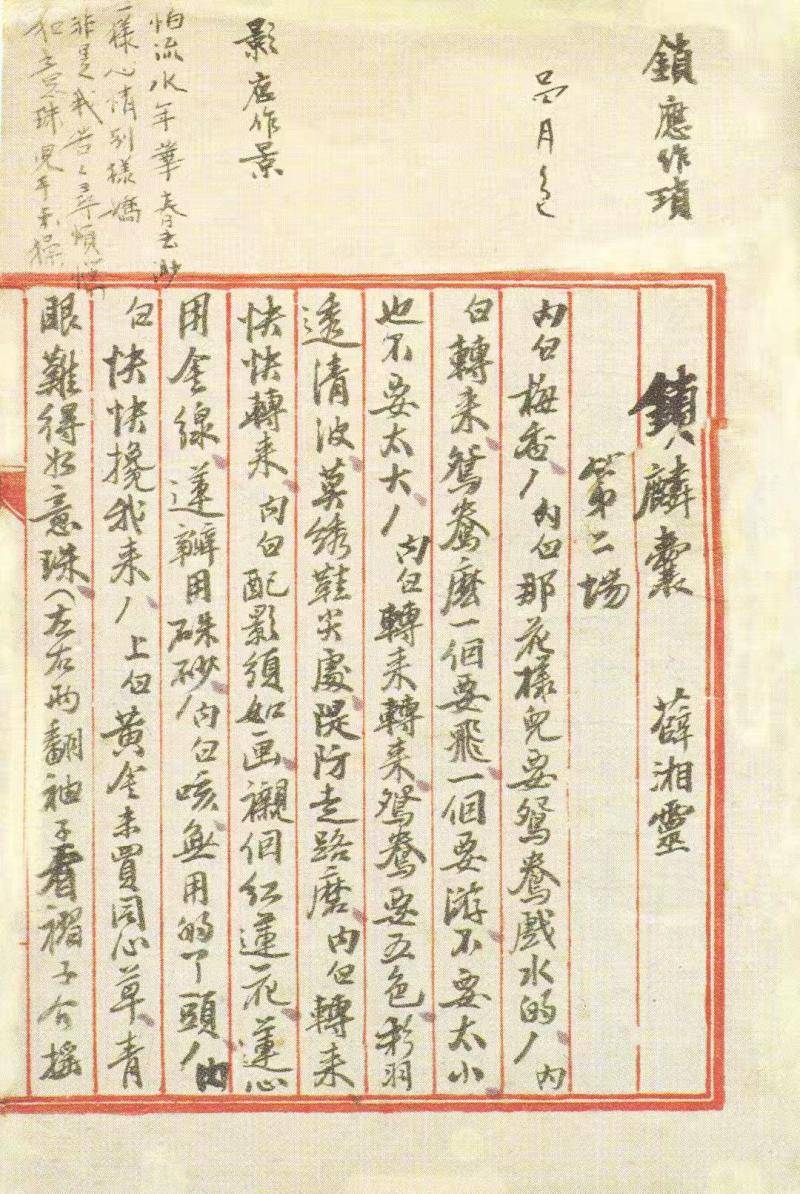 鎖應作瑣
月色
影應作景
怕流水年華春去渺
一樣心情別樣嬌
非是我苦苦尋煩惱
如意珠兒手未操
鎖麟囊　薛湘靈
第二場
內白梅香ノ內白那花樣兒要鴛鴦戲水的ノ內
白轉来鴛鴦麼一個要飛一個要游不要太小
也不要太大ノ內白轉来轉来鴛鴦要五色彩羽
透清波莫綉鞋尖處隄防走路磨內白轉来
快快轉来內白配影須如画襯個紅蓮花蓮心
用金線蓮瓣用硃砂ノ內白咳無用的丫頭ノ內
白快快攙我来ノ上白黃金未買同心草青
眼難得如意珠（左右兩翻袖子看褶子介搖